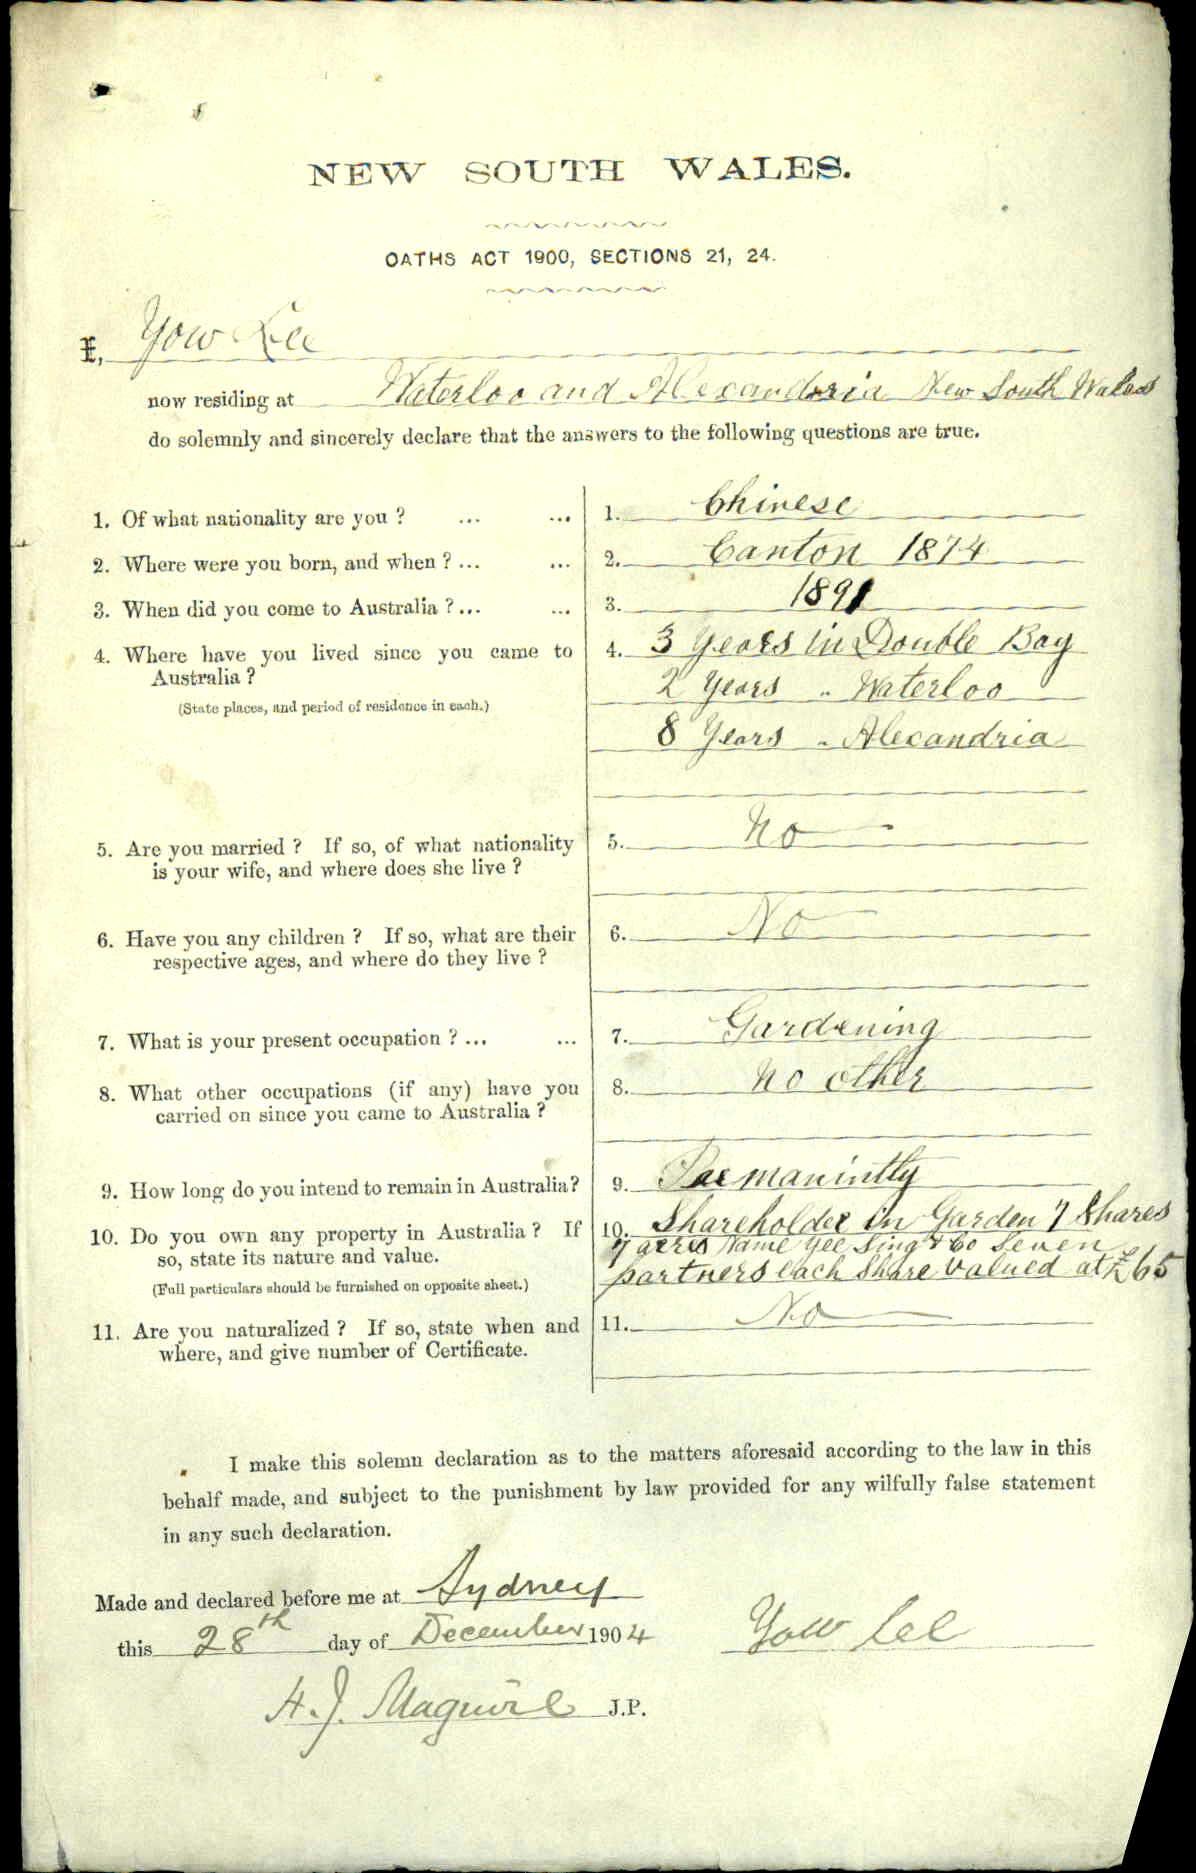 NEW SOUTH WALES.
OATHS ACT 1900, SECTIONS 21, 24.
I, Yow Lee
now residing at Waterloo and Alexandria New South Wales
do solemnly and sincerely declare that the answers to the following questions are true.
1. Of what nationality are you ? ... ... 1. Chinese
2. Where were you born, and when ? ... ... 2. Canton 1874
3. When did you come to Australia ? ... ... 3. 1891
4. Where have you lived since you came to 4. 3 Years in Double Bay
Australia ? 2 Years " Waterloo
(State places, and period of residence in each.)
8 Years " Alexandria
5. Are you married ? If so, of what nationality 5. No
is your wife, and where does she live ?
6. Have you any children ? If so, what are their 6. No
respective ages, and where do they live ?
7. What is your present occupation ? ... ... 7. Gardening
8. What other occupations (if any) have you 8. No other
carried on since you came to Australia ?
9. How long do you intend to remain in Australia? 9. Parmanintly
10. Do you own any property in Australia ? If 10. Shareholder in Garden 7 Shares
so, state its nature and value. 7 acres Name Yee Sing & Co Seven
(Full particulars should be furnished on opposite sheet.) partners each share valued at £65
11. Are you naturalized ? If so, state when and 11. No
where, and give number of Certificate.
I make this solemn declaration as to the matters aforesaid according to the law in this
behalf made, and subject to the punishment by law provided for any wilfully false statement
in any such declaration.
Made and declared before me at Sydney
this 28th day of December 1904 Yow Lee
H. J. Maguire J.P.